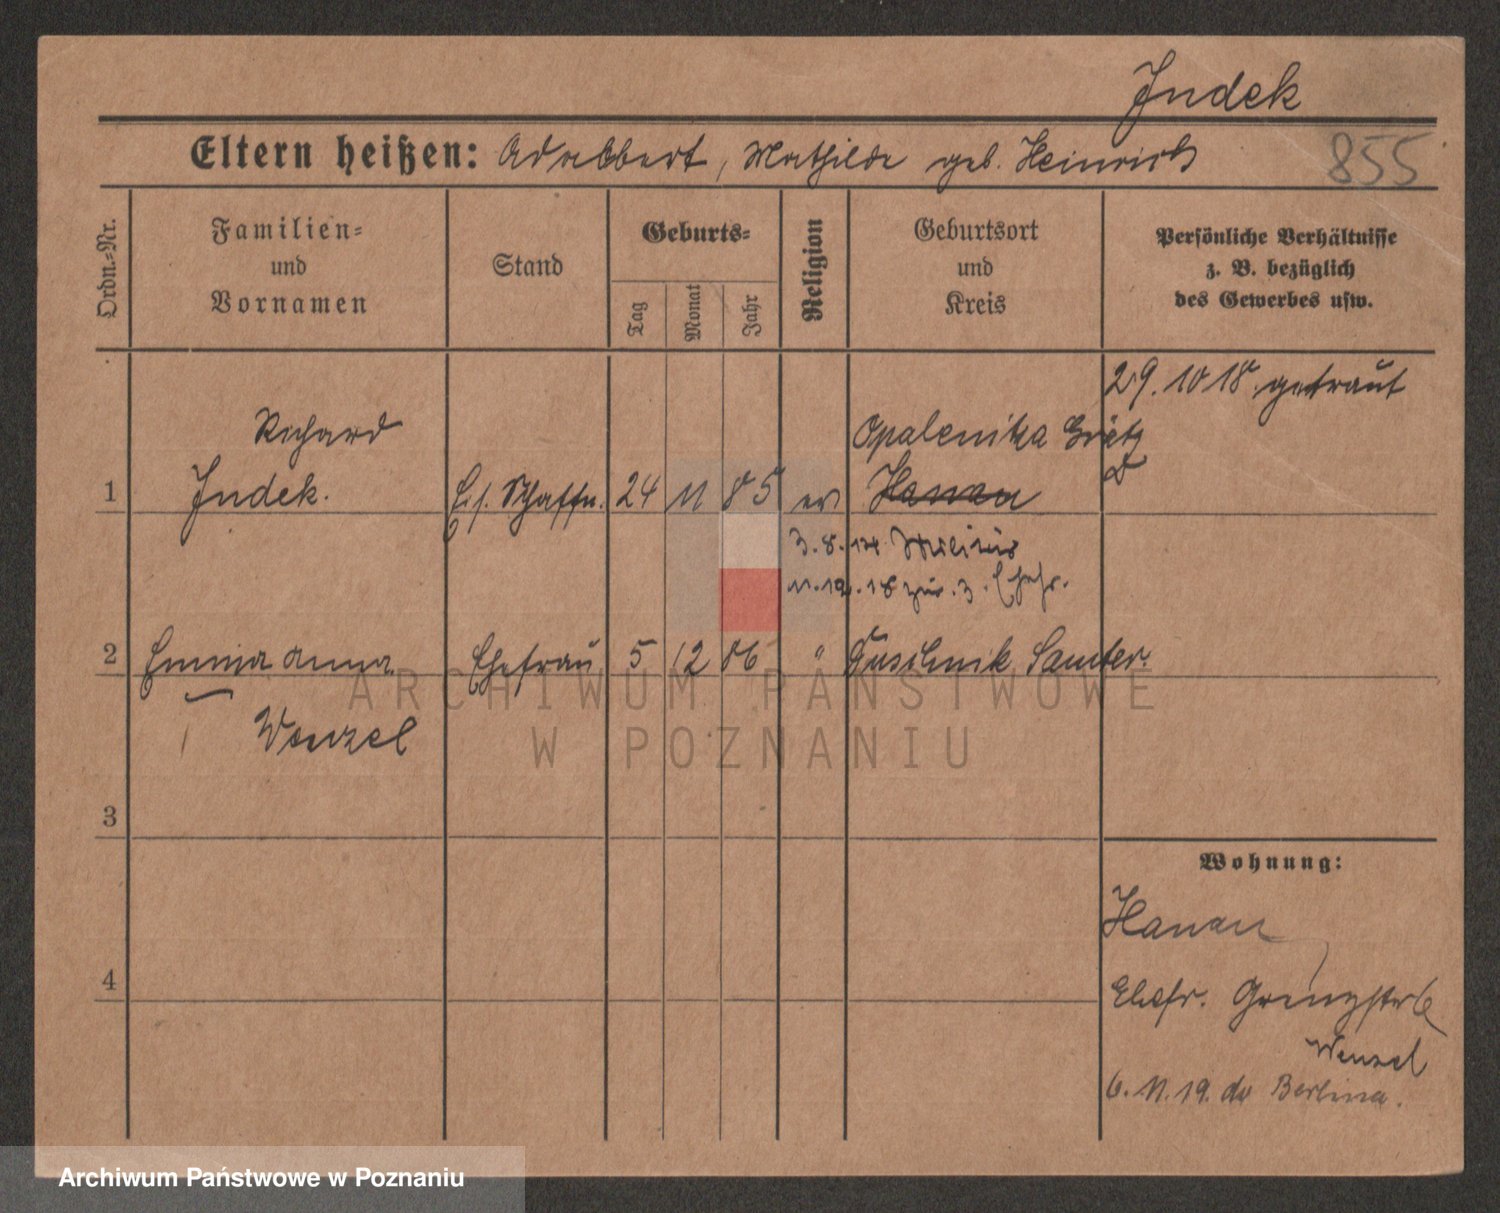 Jndek
Eltern heißen: Adalbert, Mathilde geb. Heinrich
855
Ordn.-Nr.
Familien- und Vornamen
Stand
Geburts-
Tag
Monat
Jahr
Religion
Geburtsort und Kreis
Persönliche Verhältnisse z. B. bezüglich des Gewerbes usw.
29. 10 18. getraut
Richard
Opalenitza Grätz
1 Jndek. Schaffn. 24 11 85 ev Hanau
3. 8. Militär
11. 12. 18 zur.
2 Emma Anna Ehefrau 5 12 86 " Samter.
Wenzel
3
Wohnung:
Hanau
4
Ehefr. Grenzstr 6
Wenzel
6. 11. 19.
ARCHIWUM PAŃSTWOWE
W POZNANIU
Archiwum Państwowe w Poznaniu